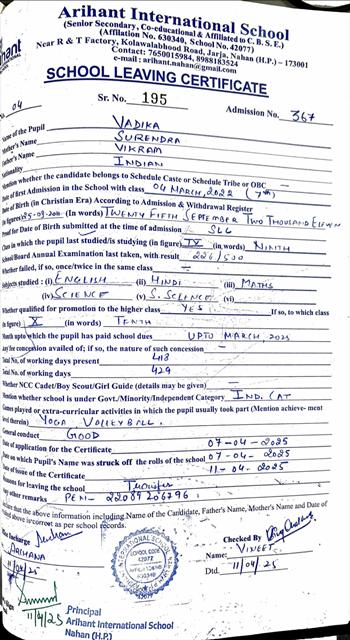 Arihant International School
(Senior Secondary, Co-educational & Affiliated to C. B. S. E.)
(Affiliation No. 630340, School No. 42077)
Near R & T Factory, Kolawalabhood Road, Jarja, Nahan (H.P.) – 173001
Contact: 7650015984, 8988183524
e-mail : arihant.nahan@gmail.com
SCHOOL LEAVING CERTIFICATE
04
Sr. No. 195
Admission No. 367
Name of the Pupil VADIKA
Mother's Name SURENDRA
Father's Name VIKRAM
Nationality INDIAN
Mention whether the candidate belongs to Schedule Caste or Schedule Tribe or OBC —
Date of first Admission in the School with class 04 MARCH, 2022 (7th)
Date of Birth (in Christian Era) According to Admission & Withdrawal Register
(in figures) 25-09-2011 (In words) TWENTY FIFTH SEPTEMBER TWO THOUSAND ELEVEN
Proof for Date of Birth submitted at the time of admission SLC
Class in which the pupil last studied/is studying (in figure) IX (in words) NINTH
School/Board Annual Examination last taken, with result 226/500
Whether failed, if so, once/twice in the same class —
Subjects studied : (i) ENGLISH (ii) HINDI (iii) MATHS
(iv) SCIENCE (v) S. SCIENCE (vi)
Whether qualified for promotion to the higher class YES If so, to which class
(in figure) X (in words) TENTH
Month upto which the pupil has paid school dues UPTO MARCH, 2025
Any fee concession availed of; if so, the nature of such concession —
Total No. of working days present 418
Total No. of working days 429
Whether NCC Cadet/Boy Scout/Girl Guide (details may be given) —
Mention whether school is under Govt./Minority/Independent Category IND. CAT
Games played or extra-curricular activities in which the pupil usually took part (Mention achieve- ment
level therein) YOGA VOLLEYBALL.
General conduct GOOD
Date of application for the Certificate 07-04-2025
Date on which Pupil's Name was struck off the rolls of the school 07-04-2025
Date of issue of the Certificate 11-04-2025
Reasons for leaving the school Transfer
Any other remarks PEN- 22089206796
that the above information including Name of the Candidate, Father's Name, Mother's Name and Date of
above is correct as per school records.
Checked By
Name: VINEET
Dtd. 11/04/25
ARCHANA
11/04/25
SCHOOL CODE
42077
630340
11/4/25
Principal
Arihant International School
Nahan (H.P.)